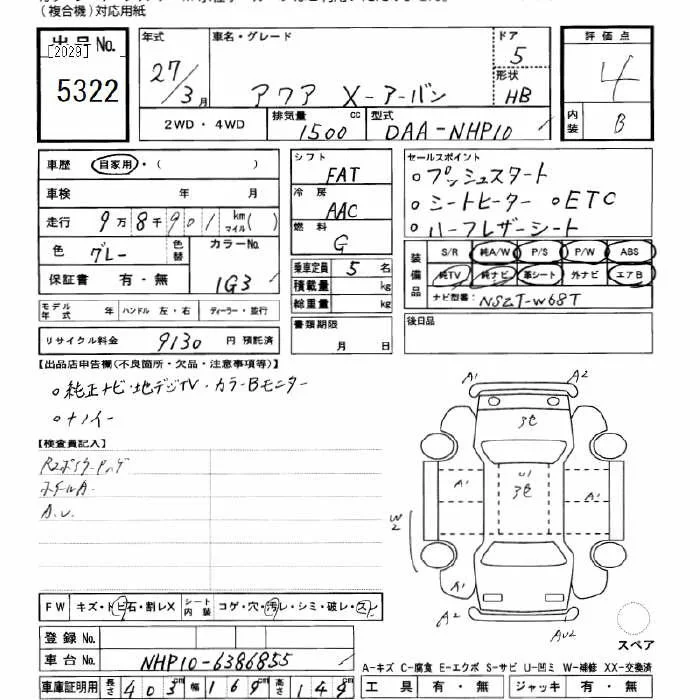 (複合機)対応用紙
出品No. [2029] 5322
年式 27/3月
車名・グレード アクア X-アーバン
ドア 5
形状 HB
評価点 4
内装 B
2WD・4WD
排気量 1500 cc
型式 DAA-NHP10
車歴 自家用・( )
車検 年 月
走行 9万8千901 km マイル( )
色 グレー 色替 カラーNo. 1G3
保証書 有・無
シフト FAT
冷房 AAC
燃料 G
乗車定員 5 名
積載量 kg
総重量 kg
書類期限 月 日
セールスポイント
○プッシュスタート
○シートヒーター ○ETC
○ハーフレザーシート
装備品 S/R 純A/W P/S P/W ABS
純TV 純ナビ 革シート 外ナビ エアB
ナビ型番: NSZT-W68T
後日品
モデル年式 年 ハンドル 左・右 ディーラー・並行
リサイクル料金 9130 円 預託済
【出品店申告欄(不良箇所・欠品・注意事項等)】
○純正ナビ・地デジTV・カラーBモニター
○ナノイー
【検査員記入】
ホイールA
A.U.
A1 A2
3色
U1
3色
A1 A1
W2
A1
A2 AU2
FW キズ・トビ石・割レX シート内装 コゲ・穴・汚レ・シミ・破レ・スレ
登録No.
車台No. NHP10-6386855
車庫証明用 長さ 403cm 幅 169cm 高さ 149cm
スペア
A-キズ C-腐食 E-エクボ S-サビ U-凹ミ W-補修 XX-交換済
工具 有・無 ジャッキ 有・無